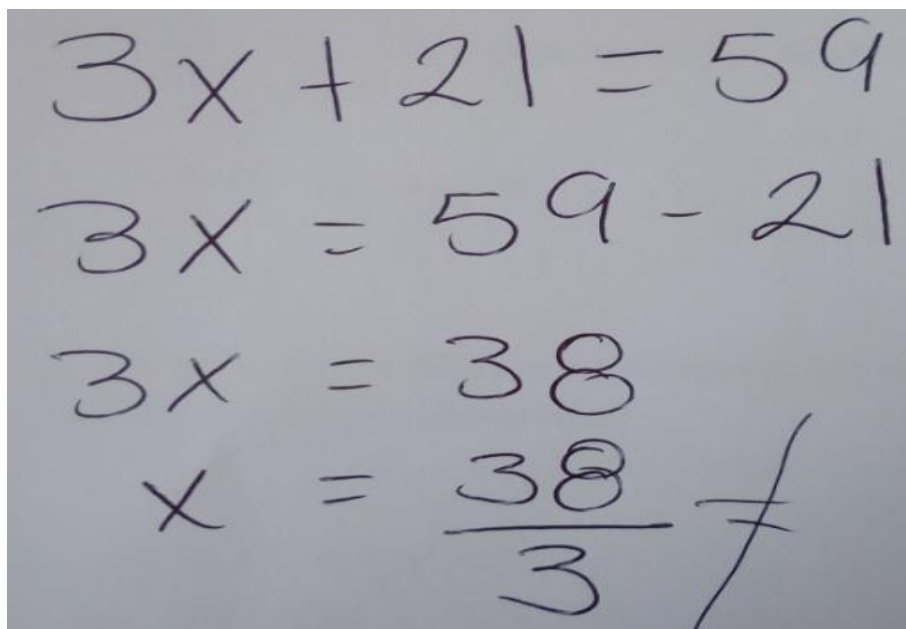 3x + 21 = 59
3x = 59 - 21
3x = 38
x = 38/3 ≠